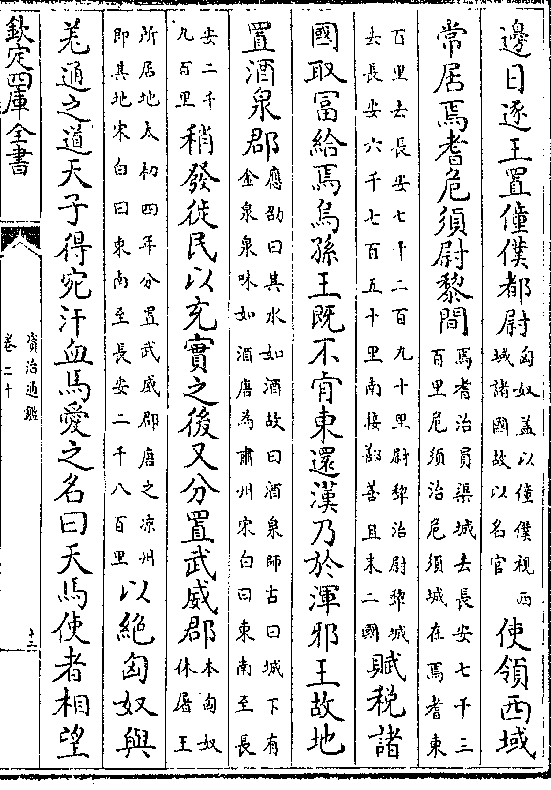 邊日逐王置僮僕都尉匈奴蓋以僮僕視西域諸國故以名官使領西域
常居焉耆危須尉黎間焉耆治員渠城去長安七千三百里危須治危須城在焉耆東
百里去長安七千二百九十里尉黎治尉黎城去長安六千七百五十里南接鄯善且末二國賦稅諸
國取富給焉烏孫王既不肯東還漢乃於渾邪王故地
置酒泉郡應劭曰其水如酒故曰酒泉師古曰城下有金泉泉味如酒唐為肅州宋白曰東南至長
安二千九百里稍發徙民以充實之後又分置武威郡本匈奴休屠王
所居地太初四年分置武威郡唐之凉州即其地宋白曰東南至長安二千八百里以絶匈奴與
羌通之道天子得宛汗血馬愛之名曰天馬使者相望
欽定四庫全書
資治通鑑
卷二十
十二